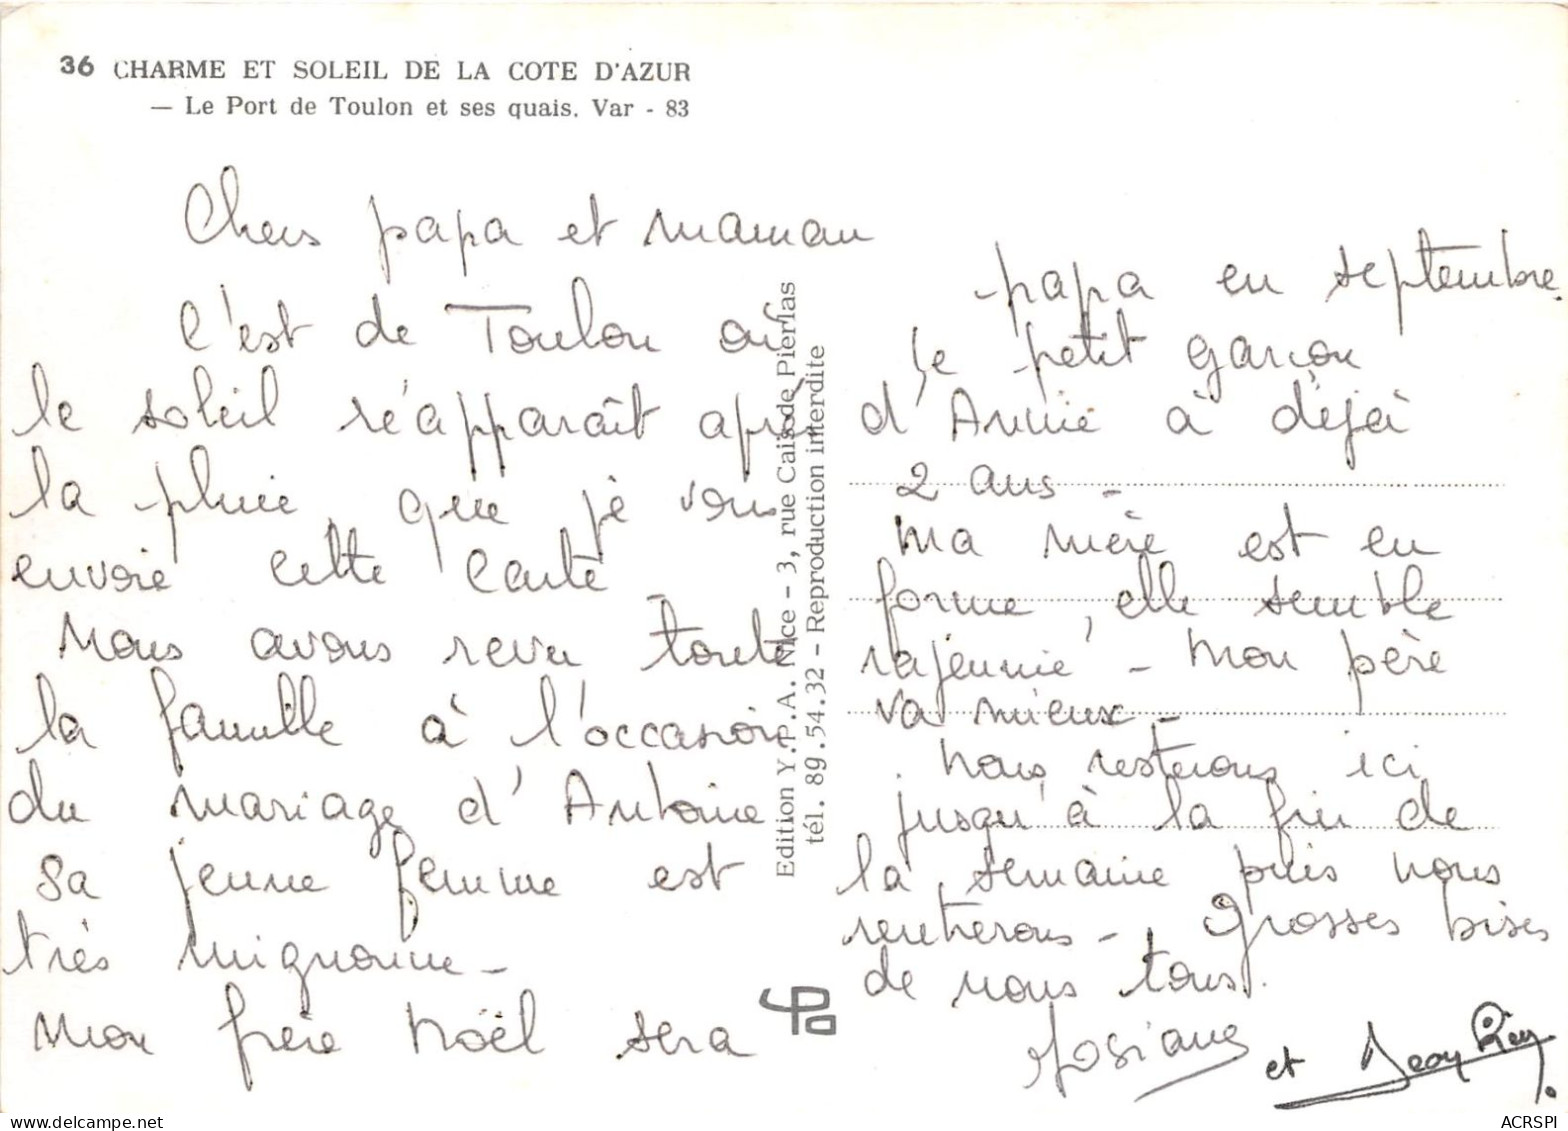 36 CHARME ET SOLEIL DE LA COTE D'AZUR
— Le Port de Toulon et ses quais. Var - 83
Chers papa et maman
C'est de Toulon où
le soleil réapparaît après
la pluie que je vous
envoie cette carte
Nous avons revu toute
la famille à l'occasion
du mariage d'Antoine
Sa jeune femme est
très mignonne -
Mon frère Noël sera
papa en septembre.
Le petit garçon
d'Annie à déjà
2 ans -
Ma mère est en
forme, elle semble
rajeunie - Mon père
va mieux -
Nous resterons ici
jusqu'à la fin de
la semaine puis nous
rentrerons - Grosses bises
de nous tous.
Josiane et Jean
Edition Y.P.A. Nice - 3, rue Caïs de Pierlas
tél. 89.54.32 - Reproduction interdite
ACRSPI